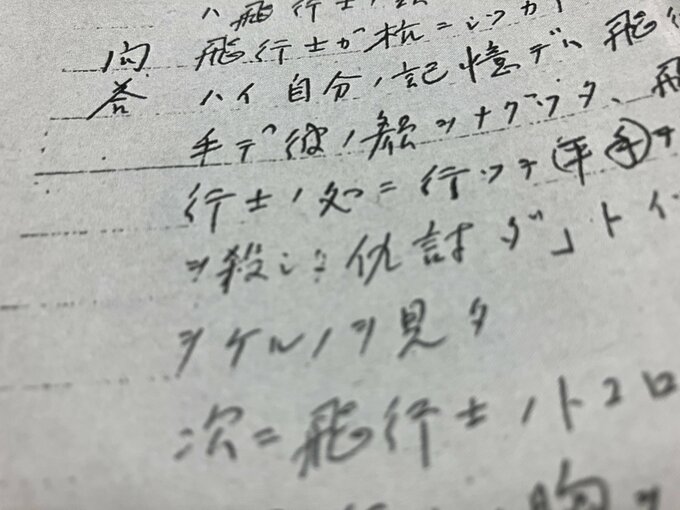 ハ飛行士ノ
問 飛行士ガ杭ニシッカ
答 ハイ自分ノ記憶デハ飛行
手デ彼ノ顔ヲナグッタ、飛
行士ノ処ニ行ッテ(平手)デ
ヲ殺シタ仇討ダ」トイ
ヲケルノヲ見タ
次ニ飛行士ノトコロ
胸ヲ